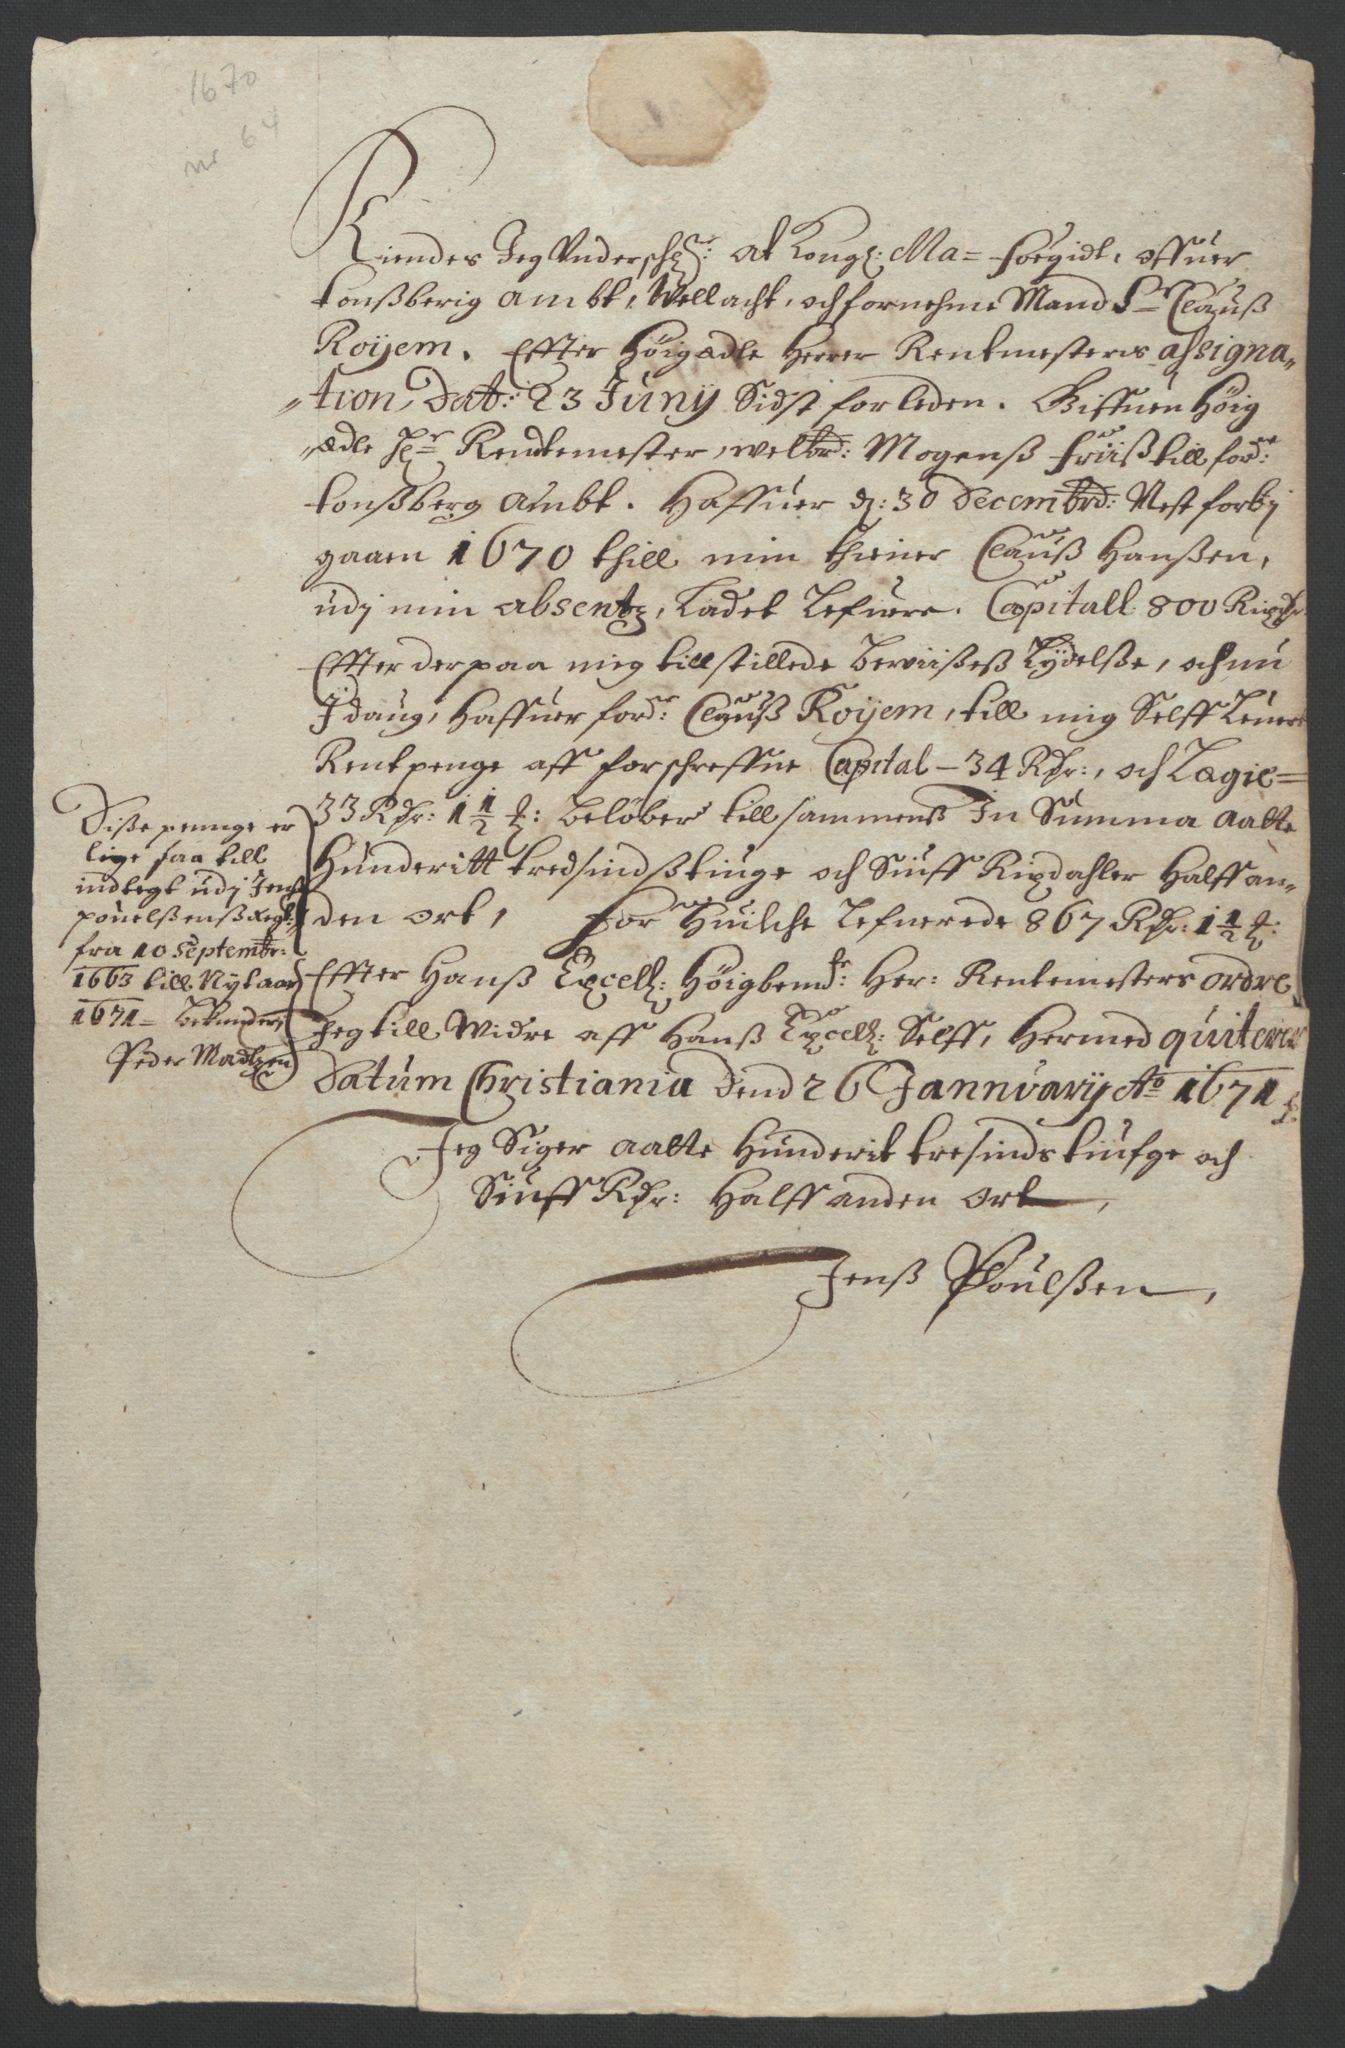 1670
nr 64
Kiendes Jeg Underschr: at Kongl: Ma= foegidt, offuer
tonßberig ambt, Wellacht, och fornehme Mand Sr Clauß
Roijem. Effter Høigædle Herrer Rentmesters assigna„
„tion, Dat: 23 Junij Sidst forleden. Giffuen Høig
„ædle Hr Rendtemester, welbrd: Mogenß friiß till ford:
tonßberg Ambt. Haffuer d: 30 Decembrd: Nest forbj
gaaen 1670 thill min thiener Clauß Hanßen,
udj min absentz, Ladet Lefuere. Capitall 800 Rixdr
Effter der paa mig till stillede beviißeß Lÿdelße, och nu
Jdaug, Haffuer ford: Clauß Roijem, till mig Selff Leuert
Rentpenge aff forschreffne Capital – 34 Rdr:, och Lægie=
33 Rdr: 1½ : beløber till sammenß In Summa aatte
Hunderitt tredsindßtiuge och Siuff Rixdahler Halffan„
den ort, for Huilche Lefuerede 867 Rdr: 1½ :
Effter Hanß Excell: Høigbemd: Her: Rentemesters ordre
Jeg till Widre aff Hanß Excell: Selff, Hermed quiterer
Datum Christiania Dend 26 Jannuarij Ao 1671
Jeg Siger aatte Hunderit tresindstiufge och
Siuff Rdr: Halffanden ort,
Jenß Poulßen,
Diße penge er
lige saa till
indtegt udj Jenß
pouelßenß Regt:
fra 10 Septembr:
1663 till Nÿtaar
1671 = bekender
Peder Madtzen